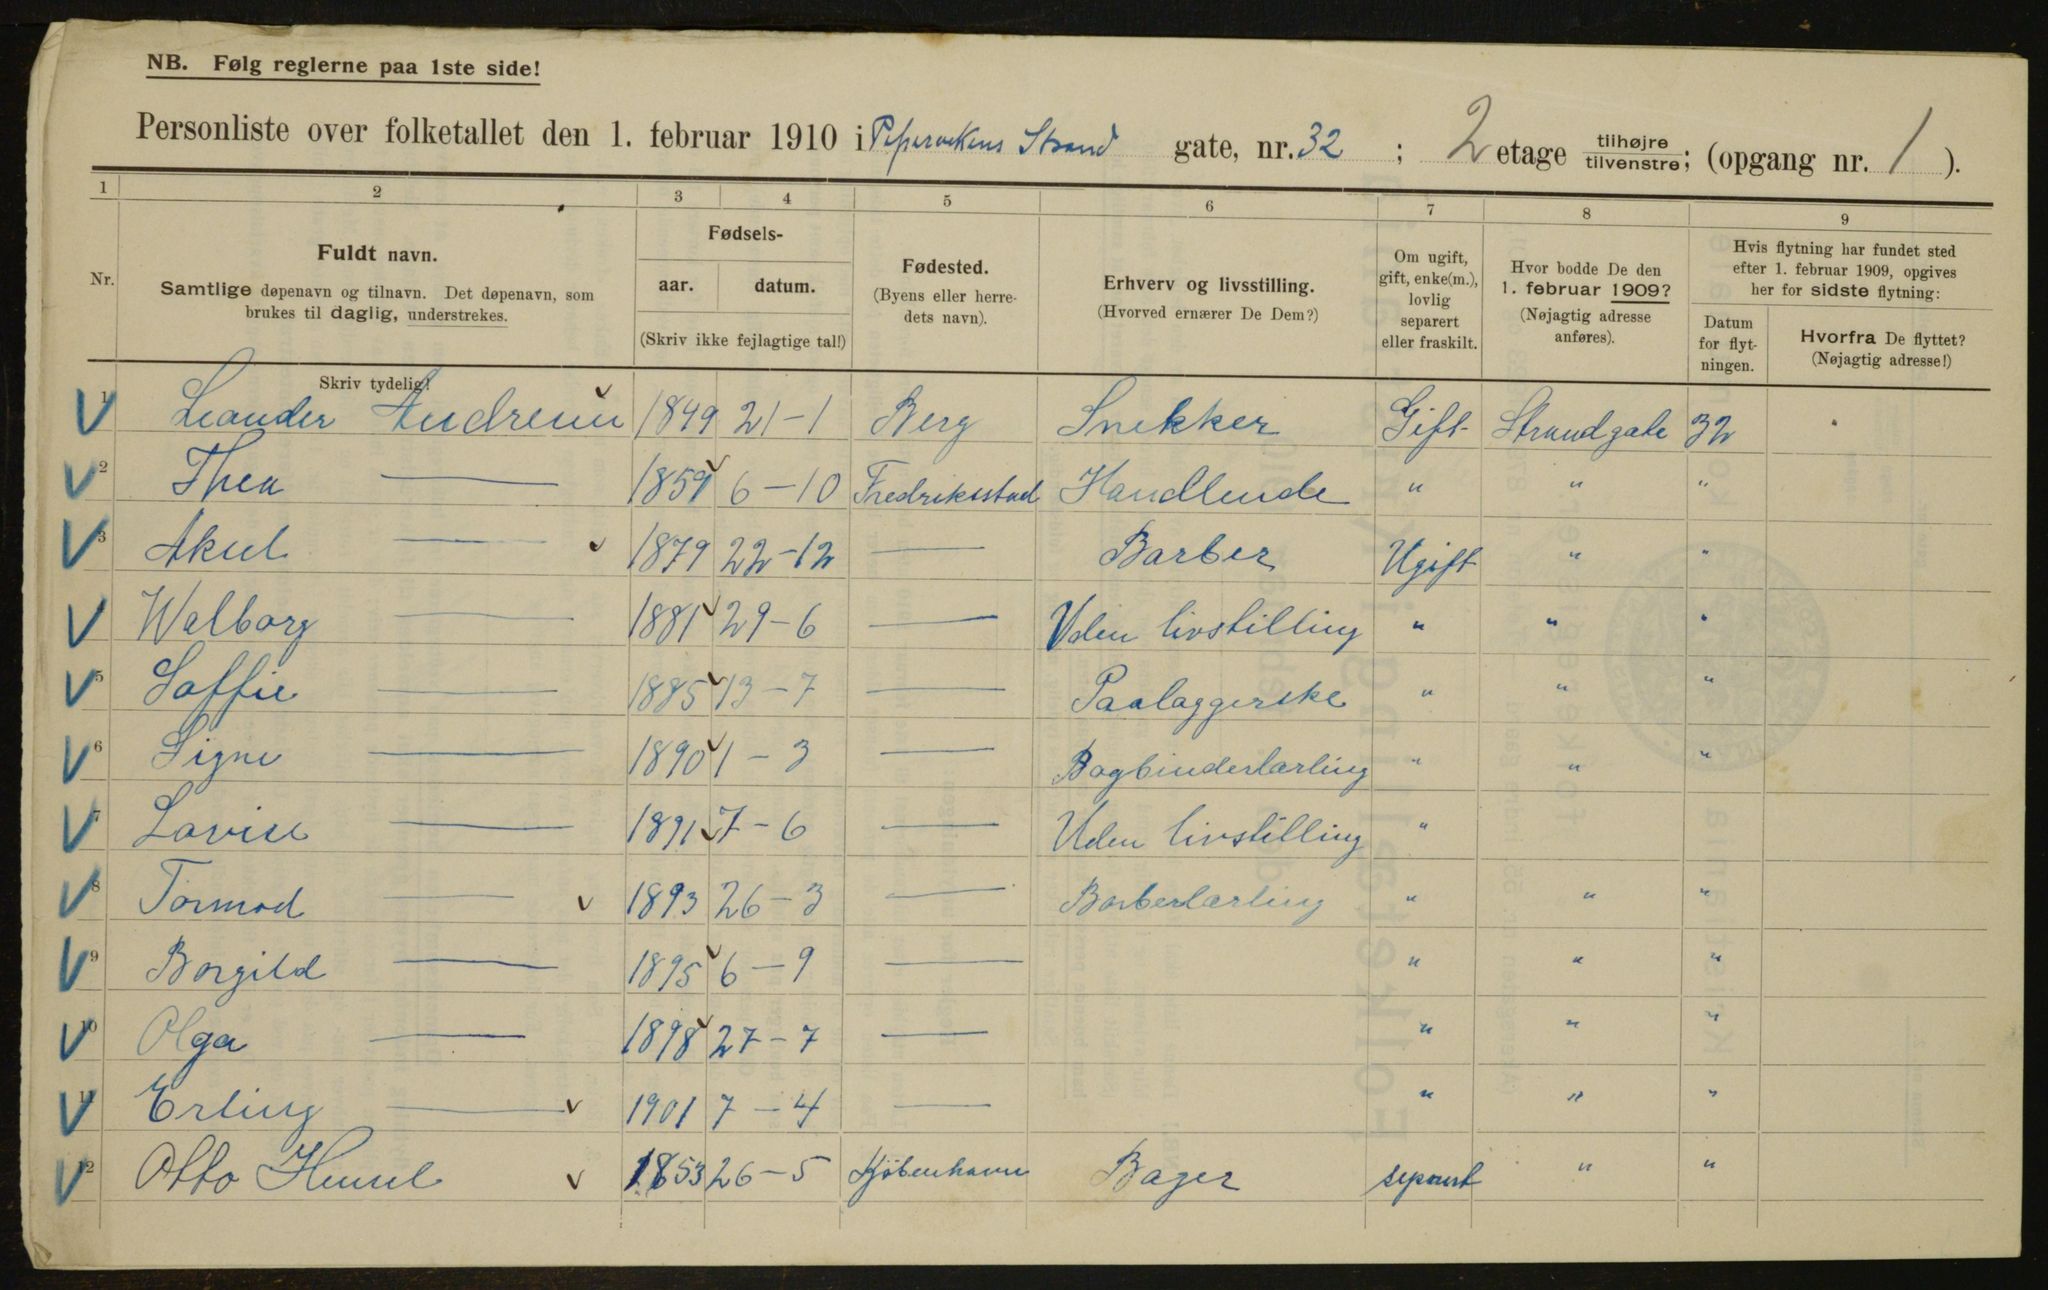 NB. Følg reglerne paa 1ste side!
Personliste over folketallet den 1. februar 1910 i Pipervikens Strand gate, nr. 32 ; 2 etage tilhøjre tilvenstre; (opgang nr. 1 ).
1 2 3 4 5 6 7 8 9
Nr.
Fuldt navn.
Samtlige døpenavn og tilnavn. Det døpenavn, som
brukes til daglig, understrekes.
Skriv tydelig!
Fødsels-
aar. datum.
(Skriv ikke fejlagtige tal!)
Fødested.
(Byens eller herre-
dets navn).
Erhverv og livsstilling.
(Hvorved ernærer De Dem?)
Om ugift,
gift, enke(m.),
lovlig
separert
eller fraskilt.
Hvor bodde De den
1. februar 1909?
(Nøjagtig adresse
anføres).
Hvis flytning har fundet sted
efter 1. februar 1909, opgives
her for sidste flytning:
Datum
for flyt-
ningen.
Hvorfra De flyttet?
(Nøjagtig adresse!)
V 1 Leander Andresen 1849 21-1 Berg Snekker Gift Strandgate 32
V 2 Thea — 1859 6-10 Fredriksstad Handlende " " "
V 3 Aksel — 1879 22-12 — Barber Ugift " "
V Walborg — 1881 29-6 — Uden livstilling " " "
V 5 Soffie — 1885 13-7 — Paalaggerske " " "
V 6 Signe — 1890 1-3 — Bogbinderlærling " " "
V 7 Lovise — 1891 7-6 — Uden livstilling "
V 8 Tormod — 1893 26-3 — Barberlærling " " "
V 9 Borgild — 1895 6-9 — " " "
V 10 Olga — 1898 27-7 — " " "
V 11 Erling — 1901 7-4 — " " "
V 12 Otto Hensel 1853 26-5 Kjøbenhavn Bager separert " "